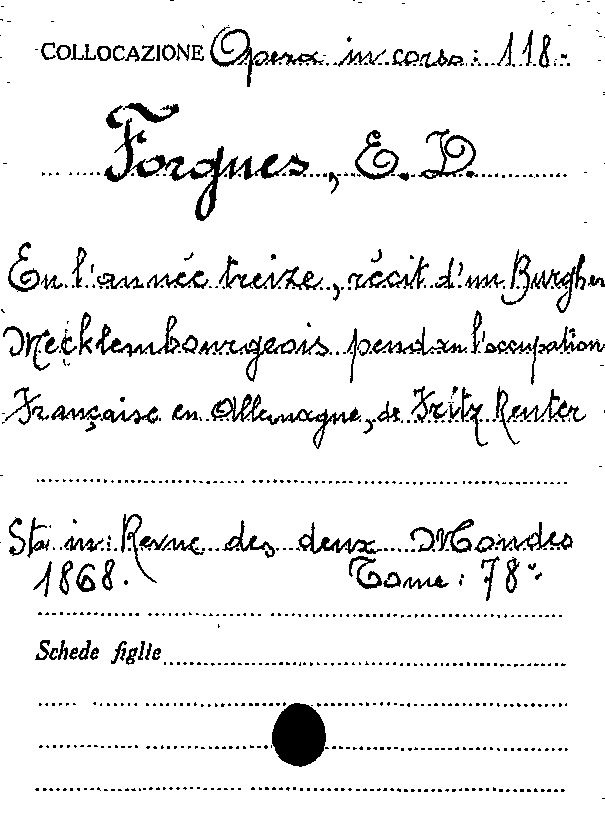 COLLOCAZIONE Opera in corso: 118.-
Forgues, E. D.
En l'année treize, récit d'un Burgher
Mecklembourgeois pendan l'occupation
Française en Allemagne, de Fritz Reuter
Sta in: Revue des deux Mondes
1868. Tome: 78°-
Schede figlie